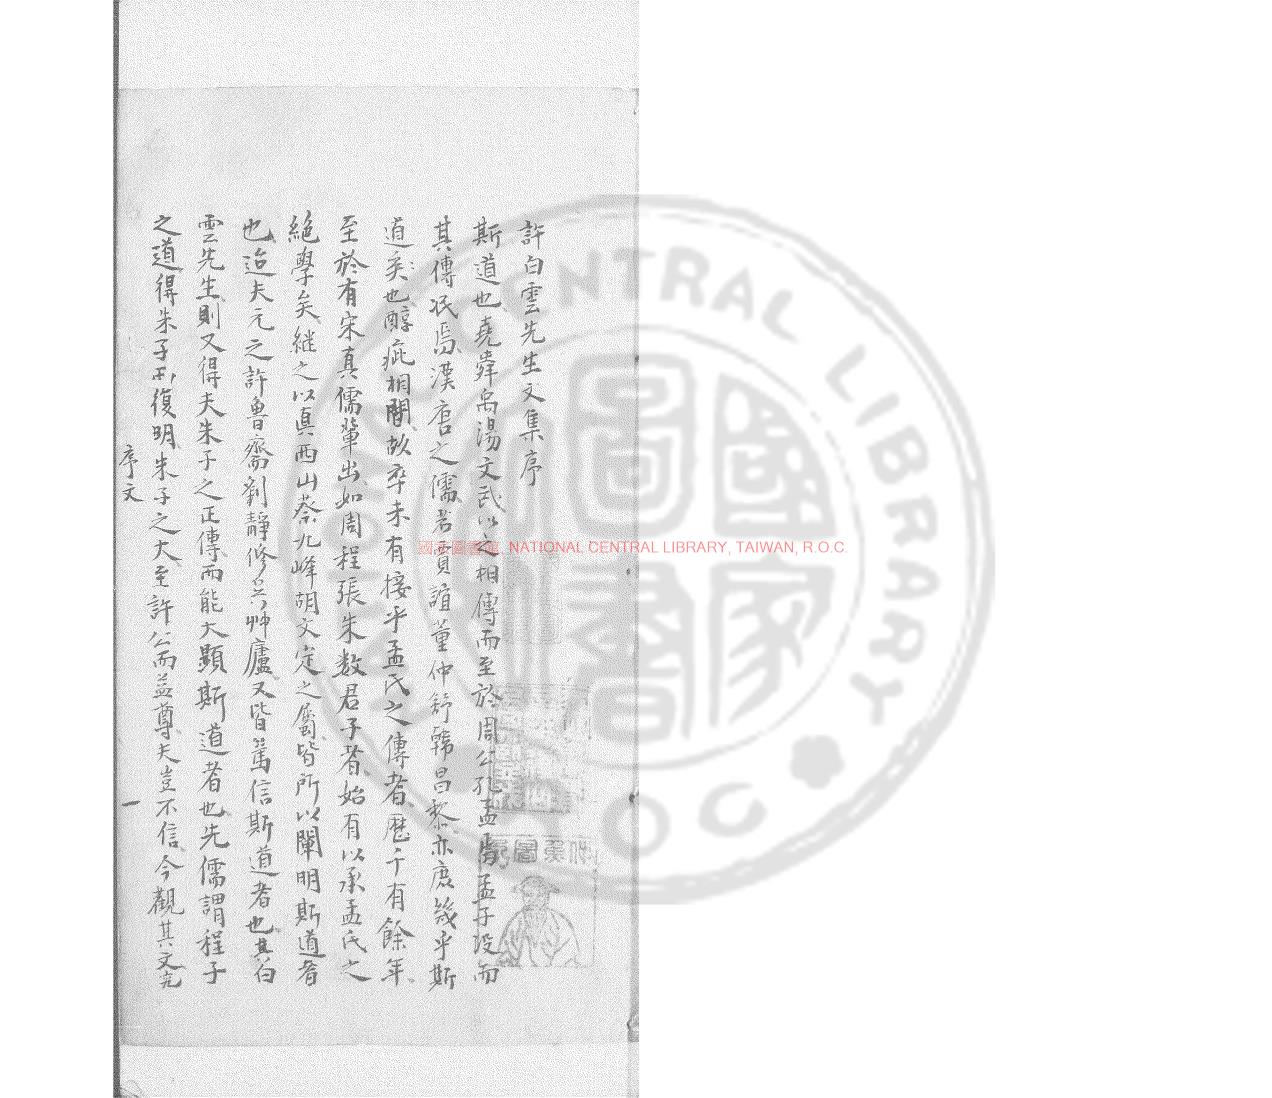 許白雲先生文集序
斯道也堯舜禹湯文武以之相傳而至於周公孔孟焉孟子歿而
其傳泯焉漢唐之儒若賈誼董仲舒韓昌黎亦庶幾乎斯
道矣也醇疵相間故卒未有接乎孟氏之傳者歷千有餘年
至於有宋真儒輩出如周程張朱數君子者始有以承孟氏之
絕學矣繼之以真西山蔡九峰胡文定之屬皆所以闡明斯道者
也迨夫元之許魯齋劉靜修吳艸廬又皆篤信斯道者也其白
雲先生則又得夫朱子之正傳而能大顯斯道者也先儒謂程子
之道得朱子而復明朱子之大至許公而益尊夫豈不信今觀其文完
序文 一
國家圖書館 NATIONAL CENTRAL LIBRARY, TAIWAN, R.O.C.
NATIONAL CENTRAL LIBRARY
ROC
國家圖書館